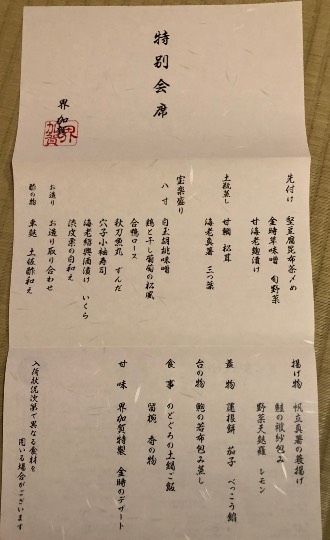 特別会席
界 加賀
界加賀
先付け 堅豆腐昆布茶〆め
金時草味噌 旬野菜
甘海老麹漬け
土瓶蒸し 甘鯛 松茸
海老真薯 三つ葉
宝楽盛り
八寸 白玉胡桃味噌
鶏と干し葡萄の松風
合鴨ロース
秋刀魚丸 ずんだ
穴子小袖寿司
海老紹興酒漬け いくら
渋皮栗の白和え
お造り お造り取り合わせ
酢の物 車麩 土佐酢和え
揚げ物 帆立真薯の蓑揚げ
鮭の袱紗包み
野菜天麩羅 レモン
蓋物 蓮根餅 茄子 べっこう餡
台の物 鮑の若布包み蒸し
食事 のどぐろの土鍋ご飯
留椀 香の物
甘味 界加賀特製 金時のデザート
入荷状況次第で異なる食材を
用いる場合がございます